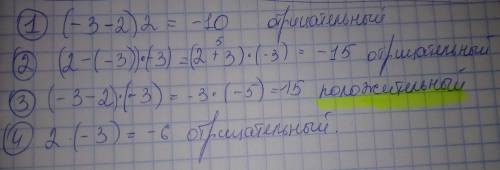 ① (-3-2)2 = -10 отрицательный
② (2-(-3))·(-3) = (2 + 3)·(-3) = -15 отрицательный
5
③ (-3-2)·(-3) = -3·(-5) = 15 положительный
④ 2·(-3) = -6 отрицательный.